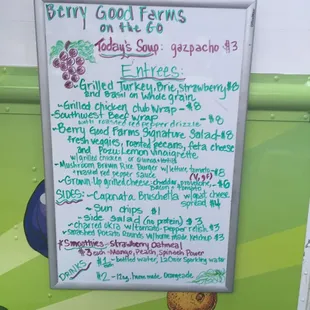 Berry Good Farms
on the Go
Today's Soup: gazpacho $3
Entrees:
Grilled Turkey, Brie, Strawberry $8
and Basil on Whole grain
- Grilled chicken club Wrap - $8
- Southwest Beef wrap - $8
with roasted red pepper drizzle
- Berry Good Farms Signature Salad - $8
fresh veggies, roasted pecans, feta cheese
and Lemon vinaigrette
w/ grilled chicken or
- Mushroom Brown Rice Burger w/ lettuce, tomato $8
+ roasted red pepper sauce
- Grown Up grilled Cheese - cheddar, provolone, $6
bacon + tomato
SIDES: - Caponata Bruschetta w/ goat cheese
spread $4
- Sun chips $1
- Side Salad (no protein) $3
- charred okra w/ tomato-pepper relish $3
- Smashed Potato Rounds w/ home made Ketchup $3
*Smoothies - Strawberry Oatmeal
$3 each - Mango, Peach, Spinach Power
DRINKS
$1 - bottled water, LaCroix Sparkling water
$2 - 12oz. home made Orangeade